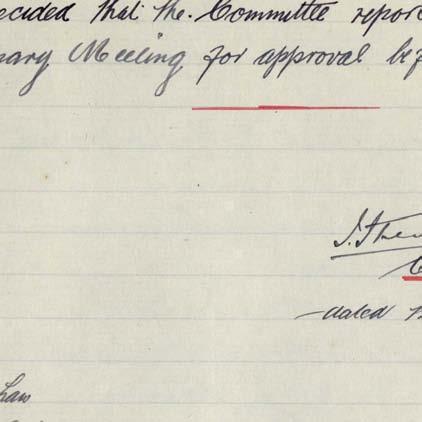 ecided that the. Committee repor
nary Meeting for approval bef
dated
haw